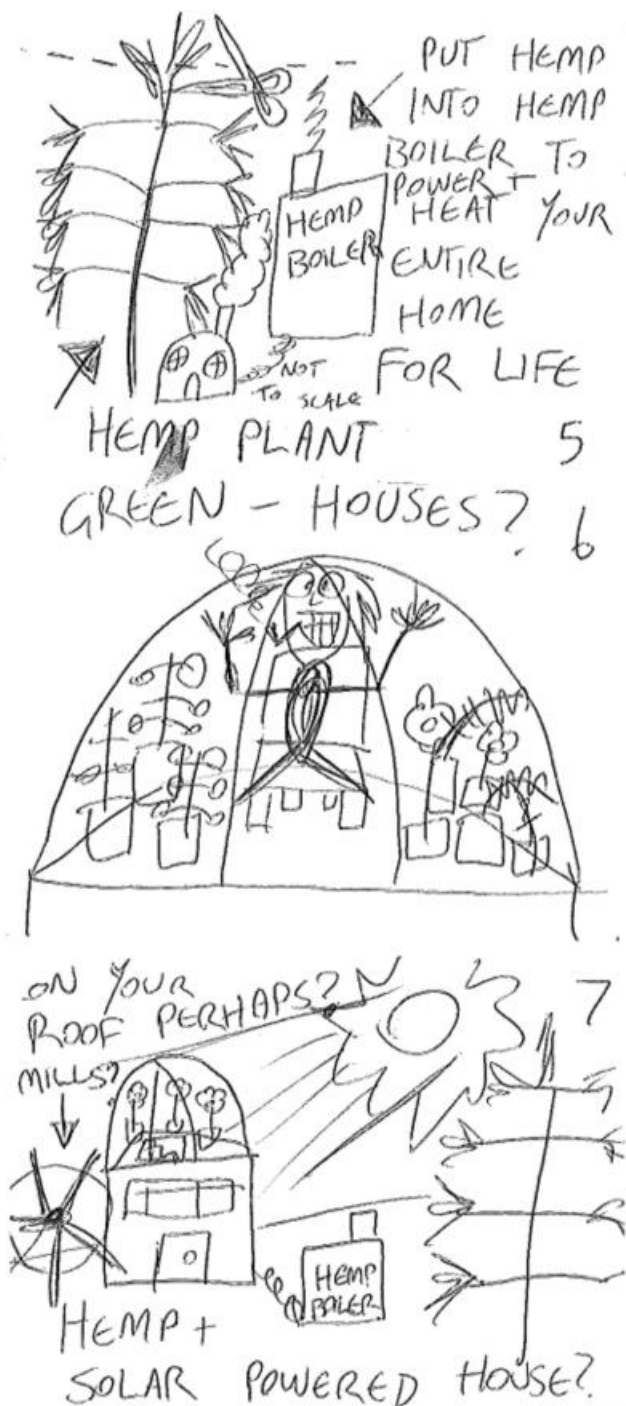 PUT HEMP
INTO HEMP
BOILER TO
POWER +
HEAT YOUR
ENTIRE
HOME
FOR LIFE
HEMP
BOILER
NOT
TO SCALE
HEMP PLANT
5
GREEN - HOUSES?
6
ON YOUR
ROOF PERHAPS?
MILLS?
7
HEMP
BOILER
HEMP +
SOLAR POWERED HOUSE?